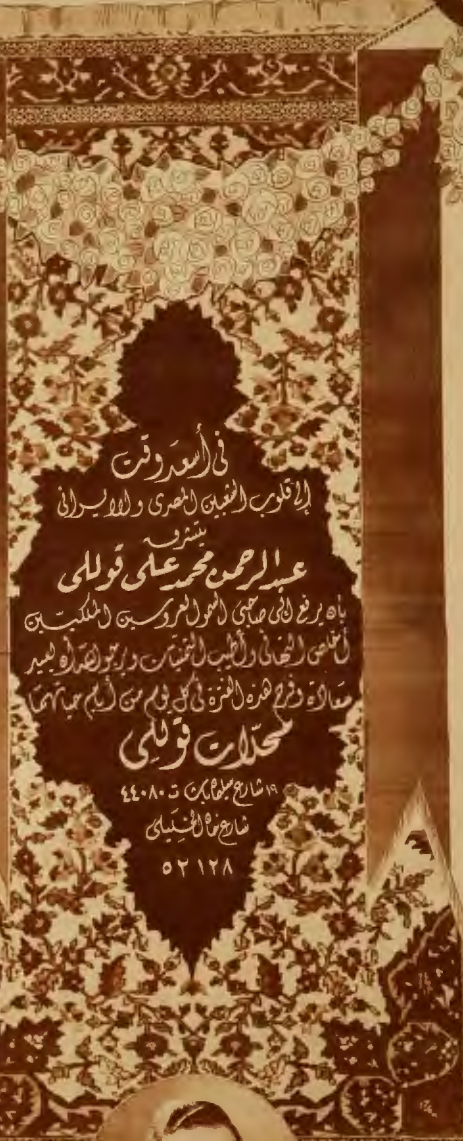 فى أسعد وقت
إلى قلوب الشعبين المصرى والايرانى
يتشرف
عبد الرحمن محمد على قوللى
بأن يرفع الى صاحبى السمو العروسين الملكيين
أخلص التهانى وأطيب التمنيات ويرجو الله أن يعيد
سعادة وفرح هذه الفترة فى كل يوم من أيام حياتهما
محلات قوللى
١٩ شارع سليمان باشا ت ٤٤٠٨٠
شارع خان الخليلى
٥٢١٢٨